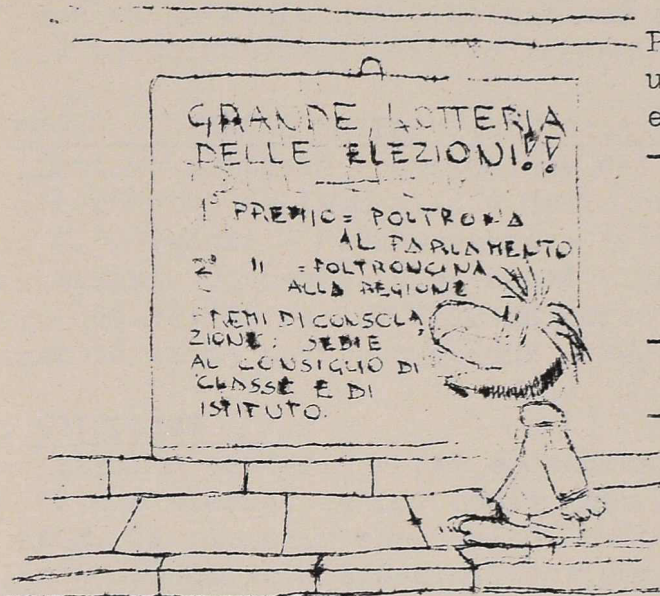 GRANDE LOTTERIA
DELLE ELEZIONI!!
1° PREMIO = POLTRONA
AL PARLAMENTO
2° II = POLTRONCINA
ALLA REGIONE
PREMI DI CONSOLA
ZIONE: SEDIE
AL CONSIGLIO DI
CLASSE E DI
ISTITUTO.